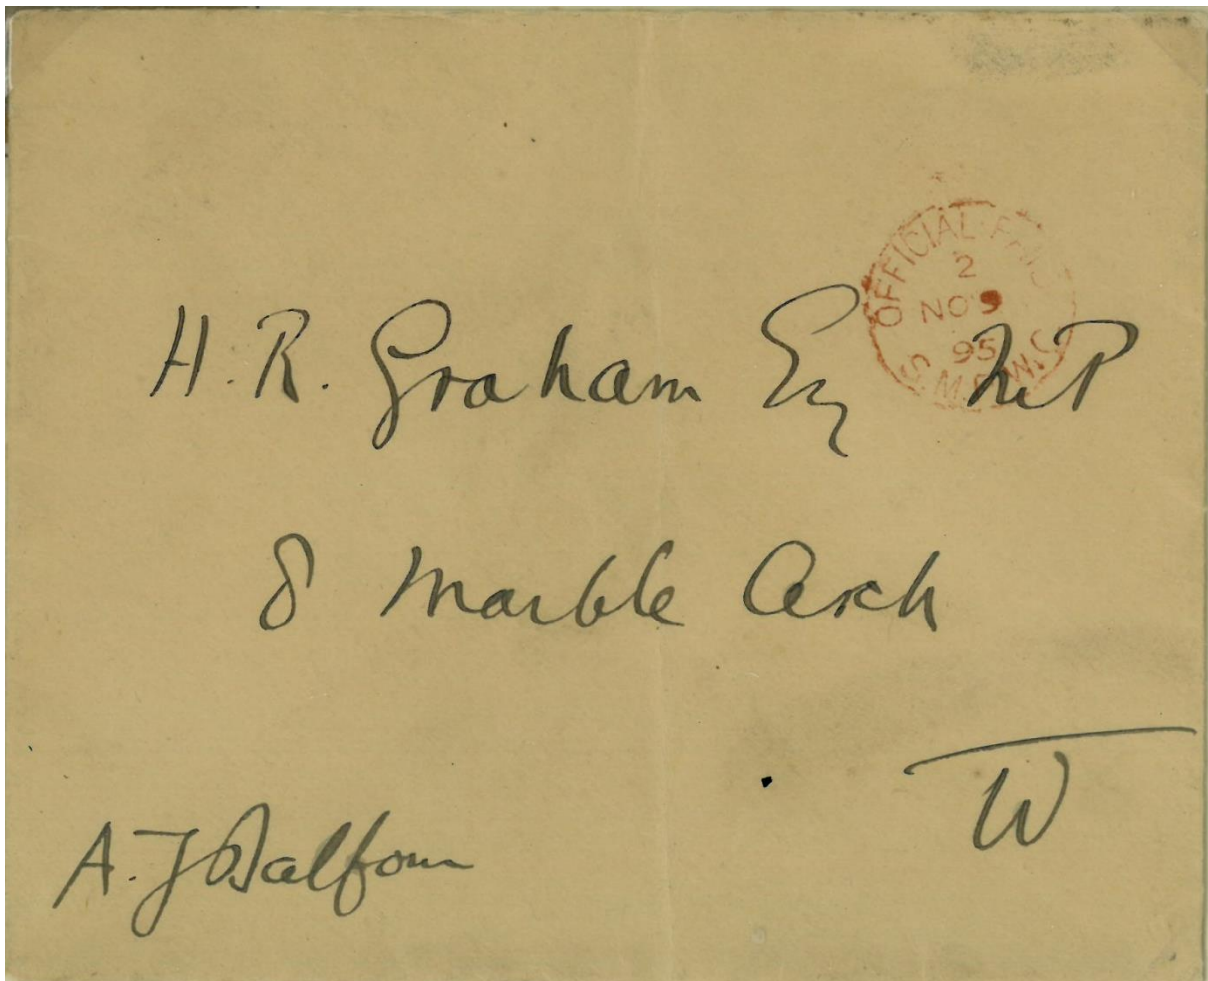 OFFICIAL PAID
2
NO 9
95
H. R. Graham Esq MP
8 Marble Arch
W
A. J Balfour